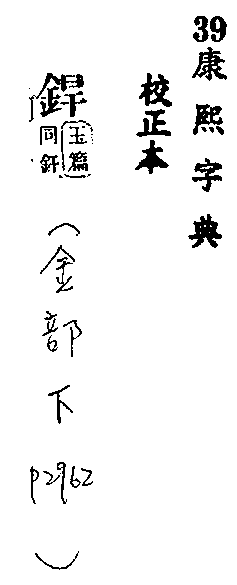 39康熙字典
校正本
銲 玉篇同釬
（金部下P2962）